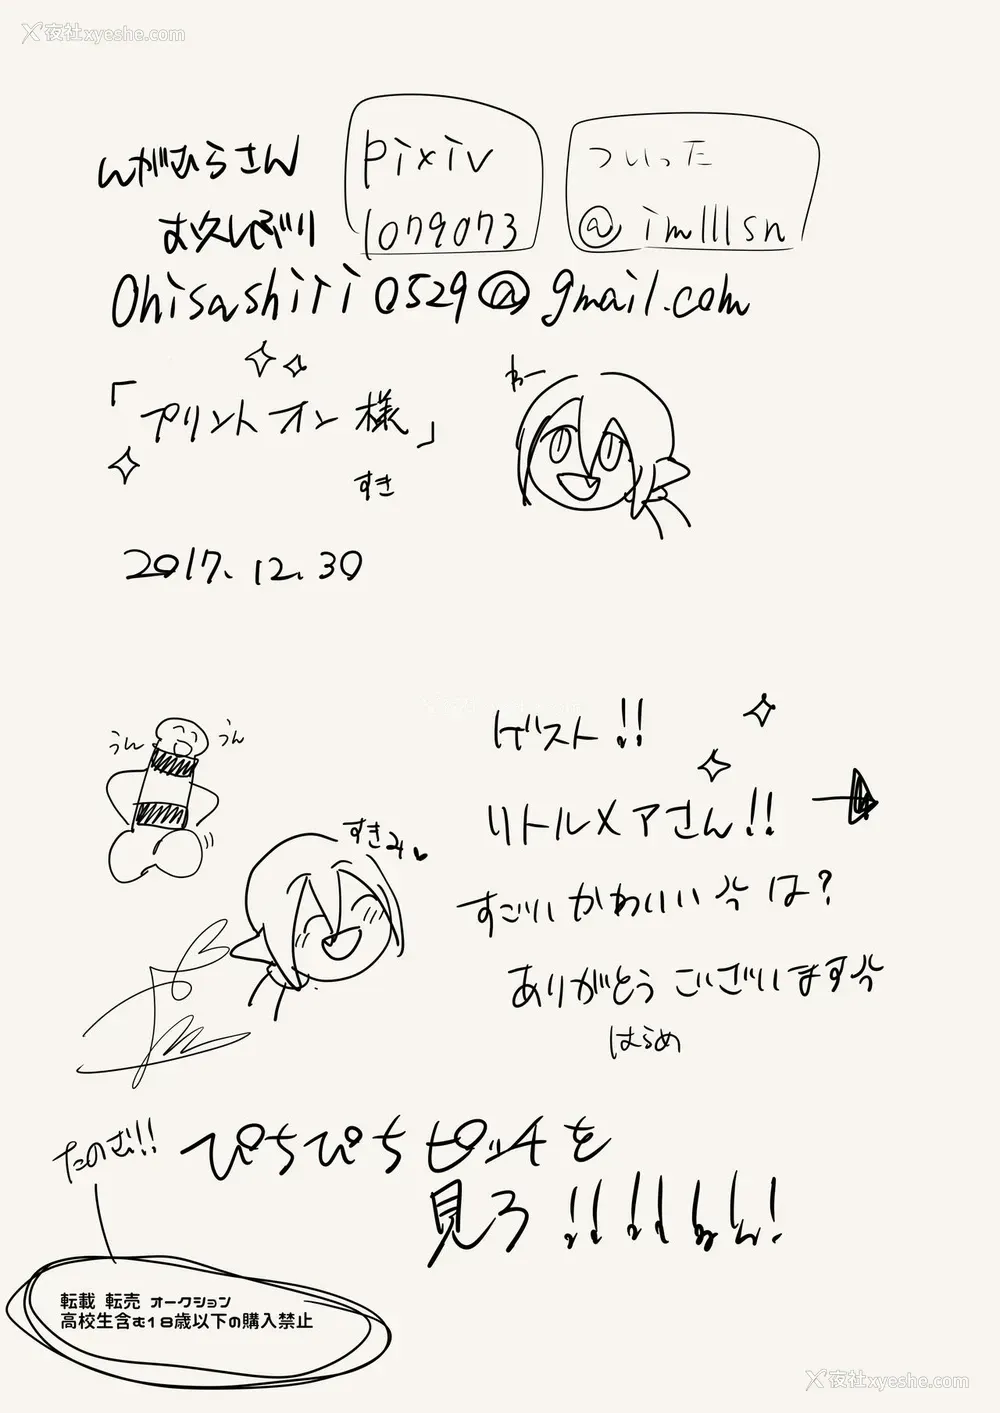 夜社xyeshe.com
んがむらさん
pixiv
1079073
ついった
@imlllsn
お久しぶり
Ohisashiri0529@gmail.com
「プリントオン様」
わー
すき
2017.12.30
ゲスト!!
うん
うん
リトルメアさん!!
すきみ
すごいかわいい は?
ありがとうございます
はらめ
たのむ!!
ぴちぴちピッチを
見ろ!!!!
転載 転売 オークション
高校生含む18歳以下の購入禁止
夜社xyeshe.com